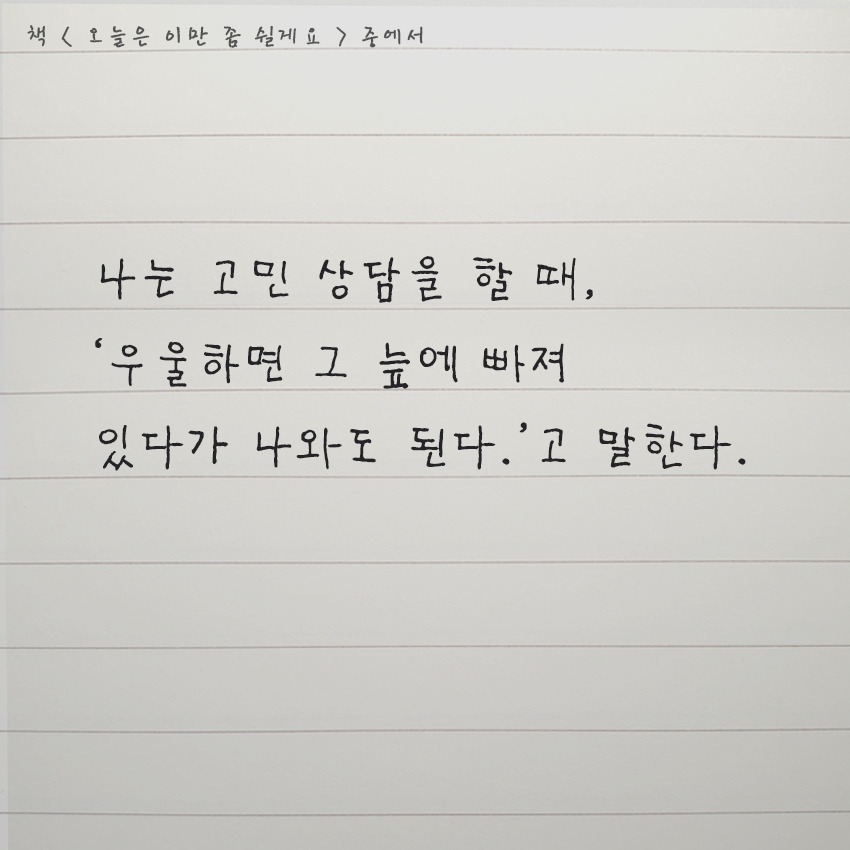 책 < 오늘은 이만 좀 쉴게요 > 중에서
나는 고민 상담을 할 때,
‘우울하면 그 늪에 빠져
있다가 나와도 된다.’고 말한다.